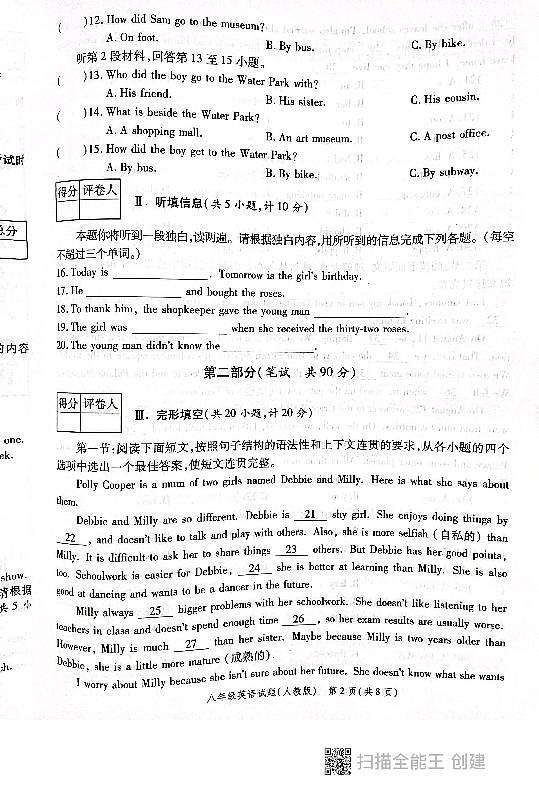 (    )12. How did Sam go to the museum?
A. On foot.    B. By bus.    C. By bike.
听第 2 段材料,回答第 13 至 15 小题。
(    )13. Who did the boy go to the Water Park with?
A. His friend.    B. His sister.    C. His cousin.
(    )14. What is beside the Water Park?
A. A shopping mall.    B. An art museum.    C. A post office.
(    )15. How did the boy get to the Water Park?
A. By bus.    B. By bike.    C. By subway.
得分 评卷人
Ⅱ. 听填信息(共 5 小题,计 10 分)
本题你将听到一段独白,读两遍。请根据独白内容,用所听到的信息完成下列各题。(每空
不超过三个单词。)
16. Today is ____________. Tomorrow is the girl's birthday.
17. He ____________ and bought the roses.
18. To thank him, the shopkeeper gave the young man ____________.
19. The girl was ____________ when she received the thirty-two roses.
20. The young man didn't know the ____________.
第二部分(笔试 共 90 分)
得分 评卷人
Ⅲ. 完形填空(共 20 小题,计 20 分)
第一节:阅读下面短文,按照句子结构的语法性和上下文连贯的要求,从各小题的四个
选项中选出一个最佳答案,使短文连贯完整。
Polly Cooper is a mum of two girls named Debbie and Milly. Here is what she says about
them.
Debbie and Milly are so different. Debbie is 21 shy girl. She enjoys doing things by
22 , and doesn't like to talk and play with others. Also, she is more selfish (自私的) than
Milly. It is difficult to ask her to share things 23 others. But Debbie has her good points,
too. Schoolwork is easier for Debbie, 24 she is better at learning than Milly. She is also
good at dancing and wants to be a dancer in the future.
Milly always 25 bigger problems with her schoolwork. She doesn't like listening to her
teachers in class and doesn't spend enough time 26 , so her exam results are usually worse.
However, Milly is much 27 than her sister. Maybe because Milly is two years older than
Debbie, she is a little more mature (成熟的).
I worry about Milly because she isn't sure about her future. She doesn't know what she wants
八年级英语试题(人教版) 第 2 页(共 8 页)
考试时
总分
的内容
one.
ek.
show.
请根据
共 5 小
sh.
扫描全能王 创建